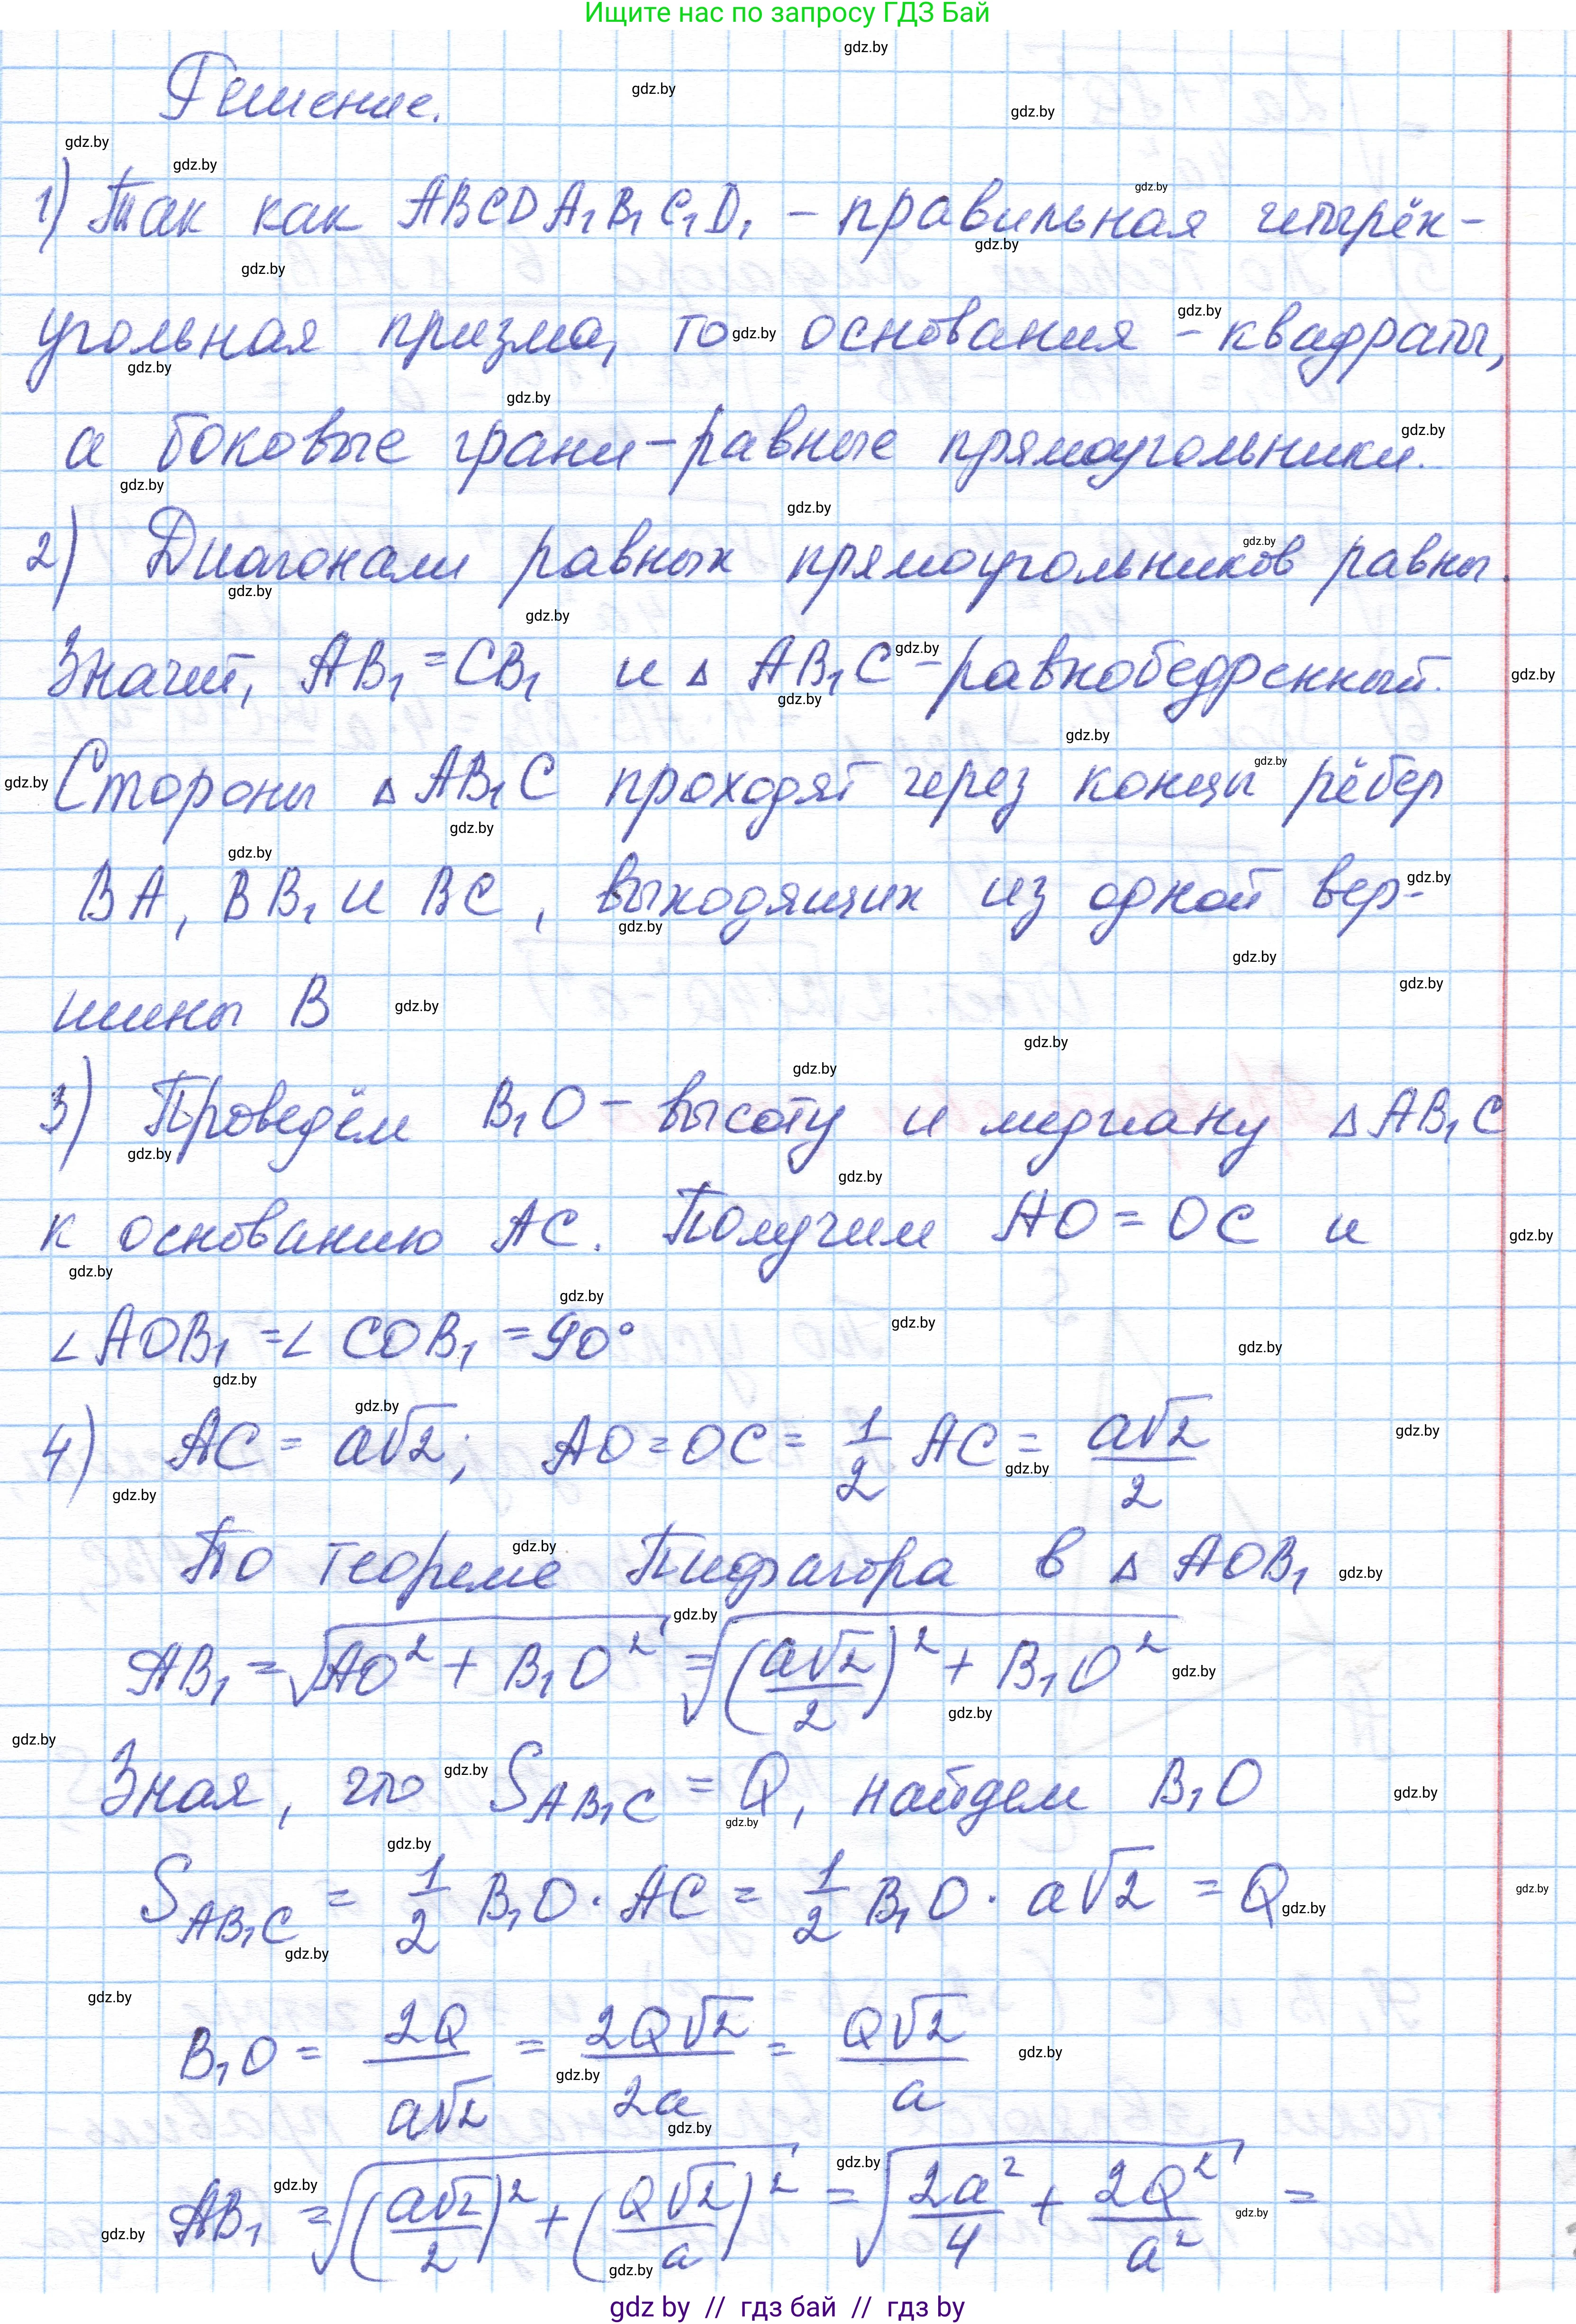 Ищите нас по запросу ГДЗ Бай
Решение.
1) Так как ABCDA₁B₁C₁D₁ – правильная четырёх-
угольная призма, то основания – квадраты,
а боковые грани – равные прямоугольники.
2) Диагонали равных прямоугольников равны.
Значит, AB₁ = CB₁ и △ AB₁C – равнобедренный.
Стороны △ AB₁C проходят через концы рёбер
BA, BB₁ и BC, выходящих из одной вер-
шины B
3) Проведём B₁O – высоту и медиану △ AB₁C
к основанию AC. Получим AO = OC и
∠AOB₁ = ∠COB₁ = 90°
4) AC = a√2; AO = OC = 1/2 AC = a√2/2
По теореме Пифагора в △ AOB₁
AB₁ = √(AO² + B₁O²) = √((a√2/2)² + B₁O²)
Зная, что S_AB₁C = Q, найдем B₁O
S_AB₁C = 1/2 B₁O · AC = 1/2 B₁O · a√2 = Q
B₁O = 2Q/(a√2) = 2Q√2/(2a) = Q√2/a
AB₁ = √((a√2/2)² + (Q√2/a)²) = √(2a²/4 + 2Q²/a²) =
gdz by // гдз бай // гдз by